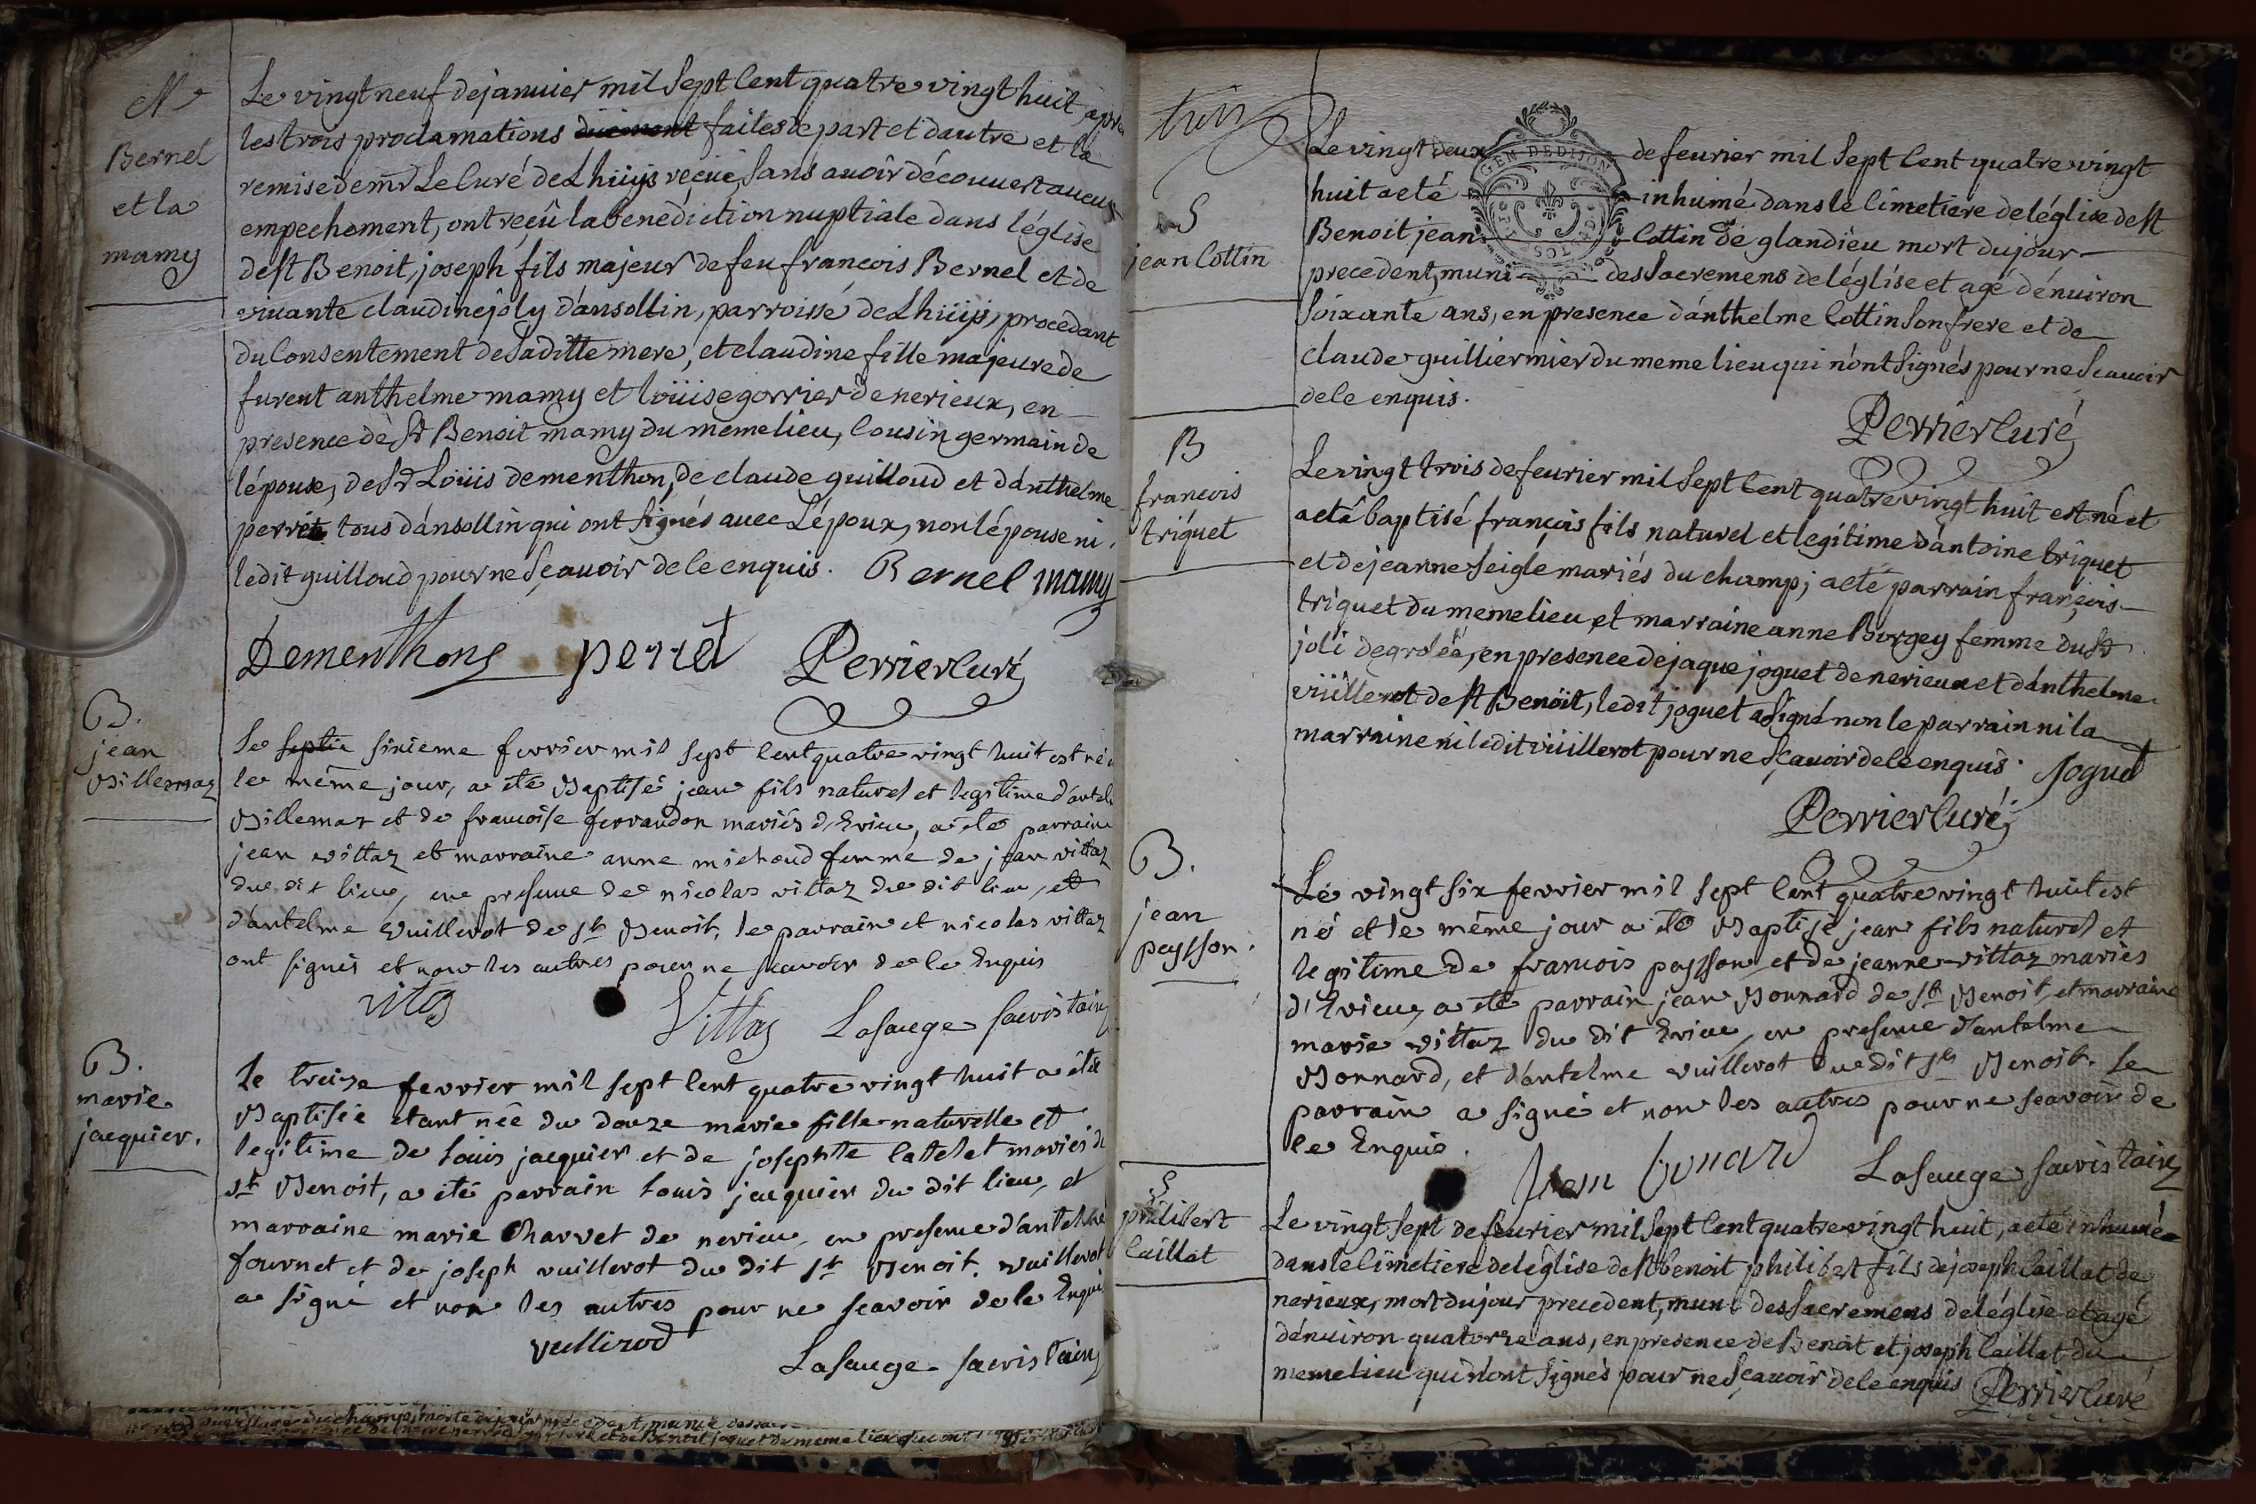 M
Bernel
et la
mamy
Le vingt neuf de janvier mil sept cent quatre vingt huit, apres
les trois proclamations duement faites de part et dautre et la
remise de mr Le Curé de Lhüys reçuë, sans avoir découvert aucun
empechement, ont reçû la benediction nuptiale dans léglise
de st Benoit, joseph fils majeur de feu francois Bernel et de
vivante claudine joly dansollin, parroisse de Lhüys, procedant
du Consentement de saditte mere, et claudine fille majeure de
furent anthelme mamy et loüise gorrier de nerieux, en
presence de sr Benoit mamy du meme lieu, Cousin germain de
lépouse, de sr Loüis dementhon, de claude guilloud et danthelme
perret tous dansollin qui ont signés avec Lépoux, non lépouse ni
ledit guilloud pour ne sçavoir de le enquis. Bernel mamy
Dementhons perret Perrier Curé
B.
jean
Billemaz
Le septie sixieme fevrier mil sept Cent quatre vingt huit est né
le même jour, a été Baptisé jean fils naturel et legitime d'antel
Billemaz et de francoise ferrandon mariés d'Evieu, a été parrain
jean vittaz et marraine anne michoud femme de jean vittaz
du dit lieu, en presence de nicolas vittaz du dit lieu, et
d'antelme vuillerot de st Benoit, le parrain et nicolas vittaz
ont signés et non les autres pour ne scavoir de le Enquis
vitas Vittaz Lasauge sacristain
B.
marie
jacquier.
Le treize fevrier mil sept Cent quatre vingt huit a été
Baptisée etant née du douze marie fille naturelle et
legitime de Louis jacquier et de josephte Catelet mariés de
st Benoit, a été parrain Louis jacquier du dit lieu, et
marraine marie Charvet de nerieu, en presence d'antelme
fournet et de joseph vuillerot du dit st Benoit. vuillerot
a signé et non les autres pour ne scavoir de le Enquis
vullirod
Lasauge sacristain
trois
GEN DE DIJON
S
jean Cottin
Le vingt deux de fevrier mil sept Cent quatre vingt
huit a eté inhumé dans le Cimetiere de léglise de st
Benoit jean Cottin de glandieu mort du jour
precedent, muni des sacremens de léglise et agé dénviron
soixante ans, en presence dánthelme Cottin son frere et de
claude guilliermier du meme lieu qui nónt signés pour ne sçavoir
de le enquis.
Perrier Curé
B
francois
triquet
Le vingt trois de fevrier mil sept Cent quatre vingt huit est né et
a eté baptisé françois fils naturel et legitime dántoine triquet
et de jeanne seigle mariés du champ; a eté parrain françois
triquet du meme lieu et marraine anne Borgey femme du sr
joli de grolée, en presence de jaque joguet de nerieux et dánthelme
vüillerot de st Benoit, ledit joguet a signé non le parrain ni la
marraine ni ledit vüillerot pour ne sçavoir de le enquis. Joguet
Perrier Curé
B.
jean
peysson.
Le vingt six fevrier mil sept Cent quatre vingt huit est
né et le même jour a été Baptisé jean fils naturel et
legitime de francois peysson et de jeanne vittaz mariés
d'Evieu, a été parrain jean Bonnard de st Benoit et marraine
marie vittaz du dit Evieu, en presence d'antelme
Bonnard, et d'antelme vuillerot du dit st Benoit. Le
parrain a signé et non les autres pour ne scavoir de
le Enquis.
Jean bonard Lasauge sacristain
S
philibert
Caillat
Le vingt sept de fevrier mil sept Cent quatre vingt huit, a eté inhumé
dans le Cimetiere de léglise de st benoit philibert fils de joseph Caillat de
nerieux, mort du jour precedent, muni des sacremens de léglise et agé
dénviron quatorze ans, en presence de Benoit et joseph Caillat du
meme lieu qui nónt signés pour ne sçavoir de le enquis Perrier Curé